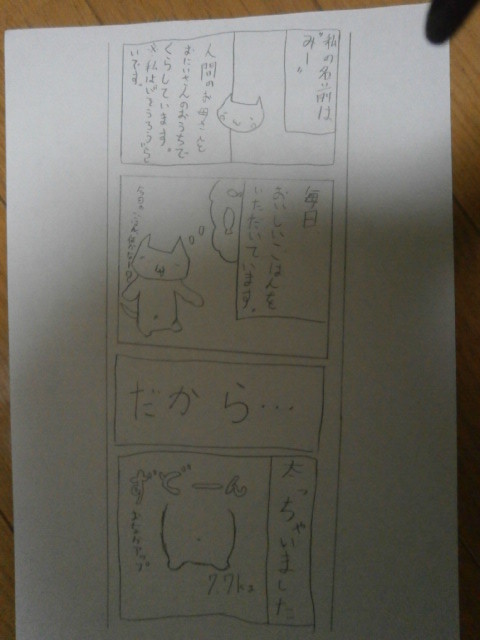 私の名前は
みー。
人間のお母さんと
おにいさんのおうちで
くらしています。
いです。
毎日
おいしいごはんを
いただいています。
だから…
太っちゃいました
ずどーん
おなかアップ
7.7kg